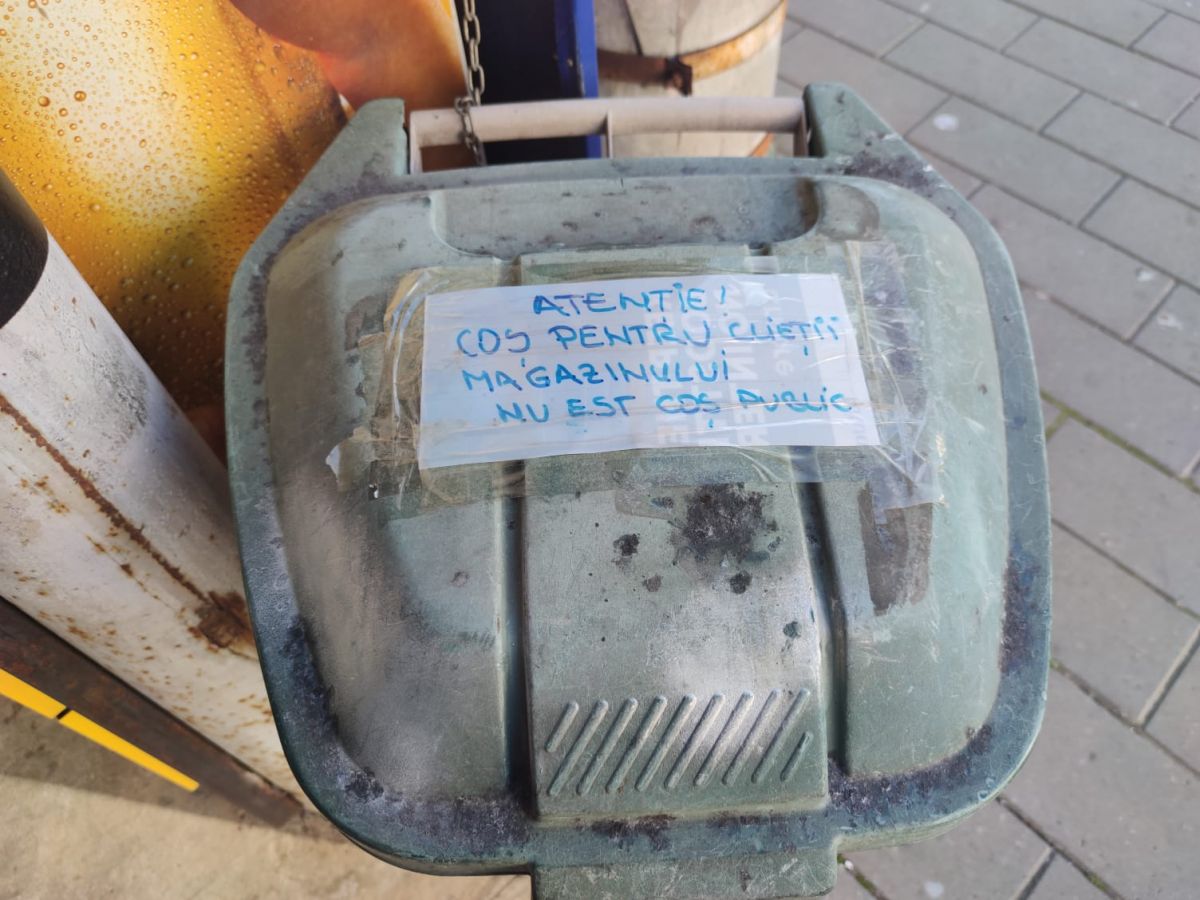 ATENTIE!
COȘ PENTRU CLIEȚII
MAGAZINULUI
NU EST COȘ PUBLIC